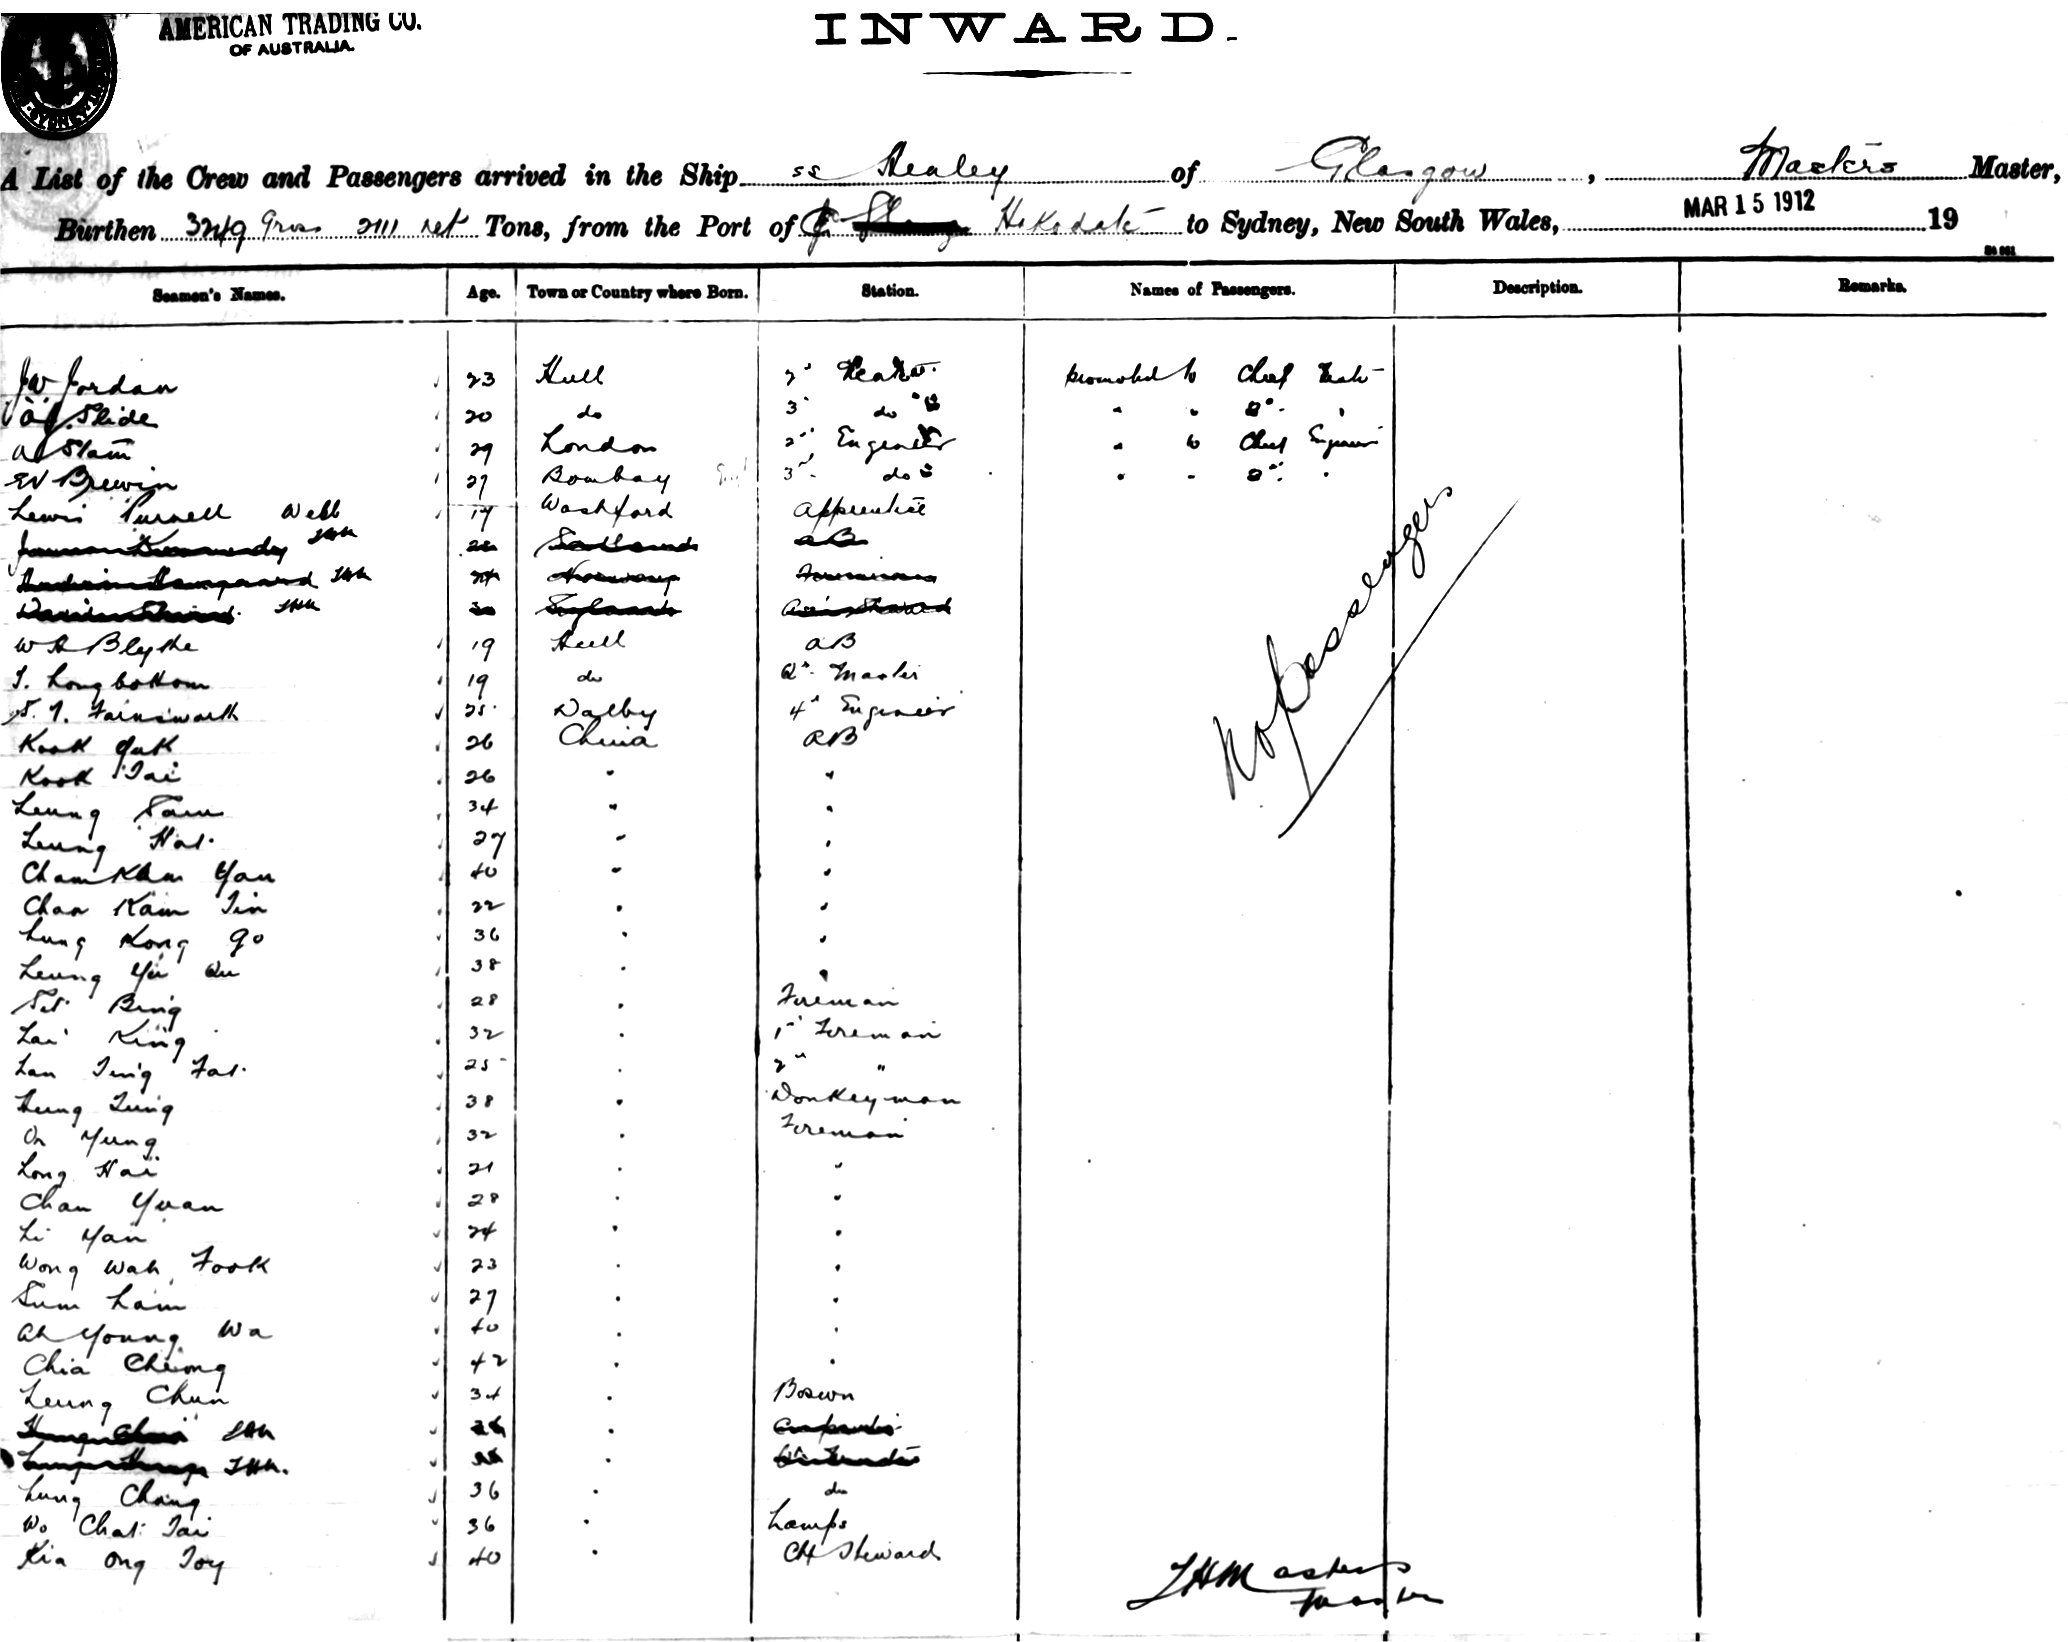 AMERICAN TRADING CO.
OF AUSTRALIA.
SYDNEY
INWARD.
A List of the Crew and Passengers arrived in the Ship ss Healey of Glasgow, Masters Master,
Burthen 3249 Gross 2111 net Tons, from the Port of Hakodate to Sydney, New South Wales, MAR 15 1912 19
Seamen's Names. Age. Town or Country where Born. Station. Names of Passengers. Description. Remarks.
JW Jordan 23 Hull 2nd Mate promoted to Chief Mate
Slide 20 do 3 do " " 2nd "
A Stam 29 London 2nd Engineer " to Chief Engineer
EV Brewin 27 Bombay 3rd do " " 2nd "
Lewis Purnell Webb 17 Washford Apprentice
JHM
JHM Norway
JHM
W H Blythe 19 Hull AB
T. Longbottom 19 do Qr Master
S. T. Farnsworth 25 Dalby 4th Engineer
No passengers
Kook Yuk 26 China AB
Kook Tai 26 " "
Leung Sam 34 " "
Leung Hat 27 " "
Cham Kam Yau 40 " "
Chan Kam Tin 22 " "
Lung Kong Go 36 " "
Leung Yu 38 " "
Bing 28 " Fireman
Lai King 32 " 1st Fireman
Lau Ting Fat 25 " 2nd "
Leung Tung 38 " Donkeyman
On Yung 32 " Fireman
Long Hai 21 " "
Chan Yuan 28 " "
Li Yan 24 " "
Wong Wah Fook 23 " "
Sum Lam 27 " "
Ah Young Wa 40 " "
Chia Cheong 42 " "
Leung Chun 34 " Boswn
JHM "
JHM. "
Lung Chang 36 " do
Wo Chat Tai 36 " Lamps
Kia Ong Toy 40 " Ch Steward
JHMasters
Master